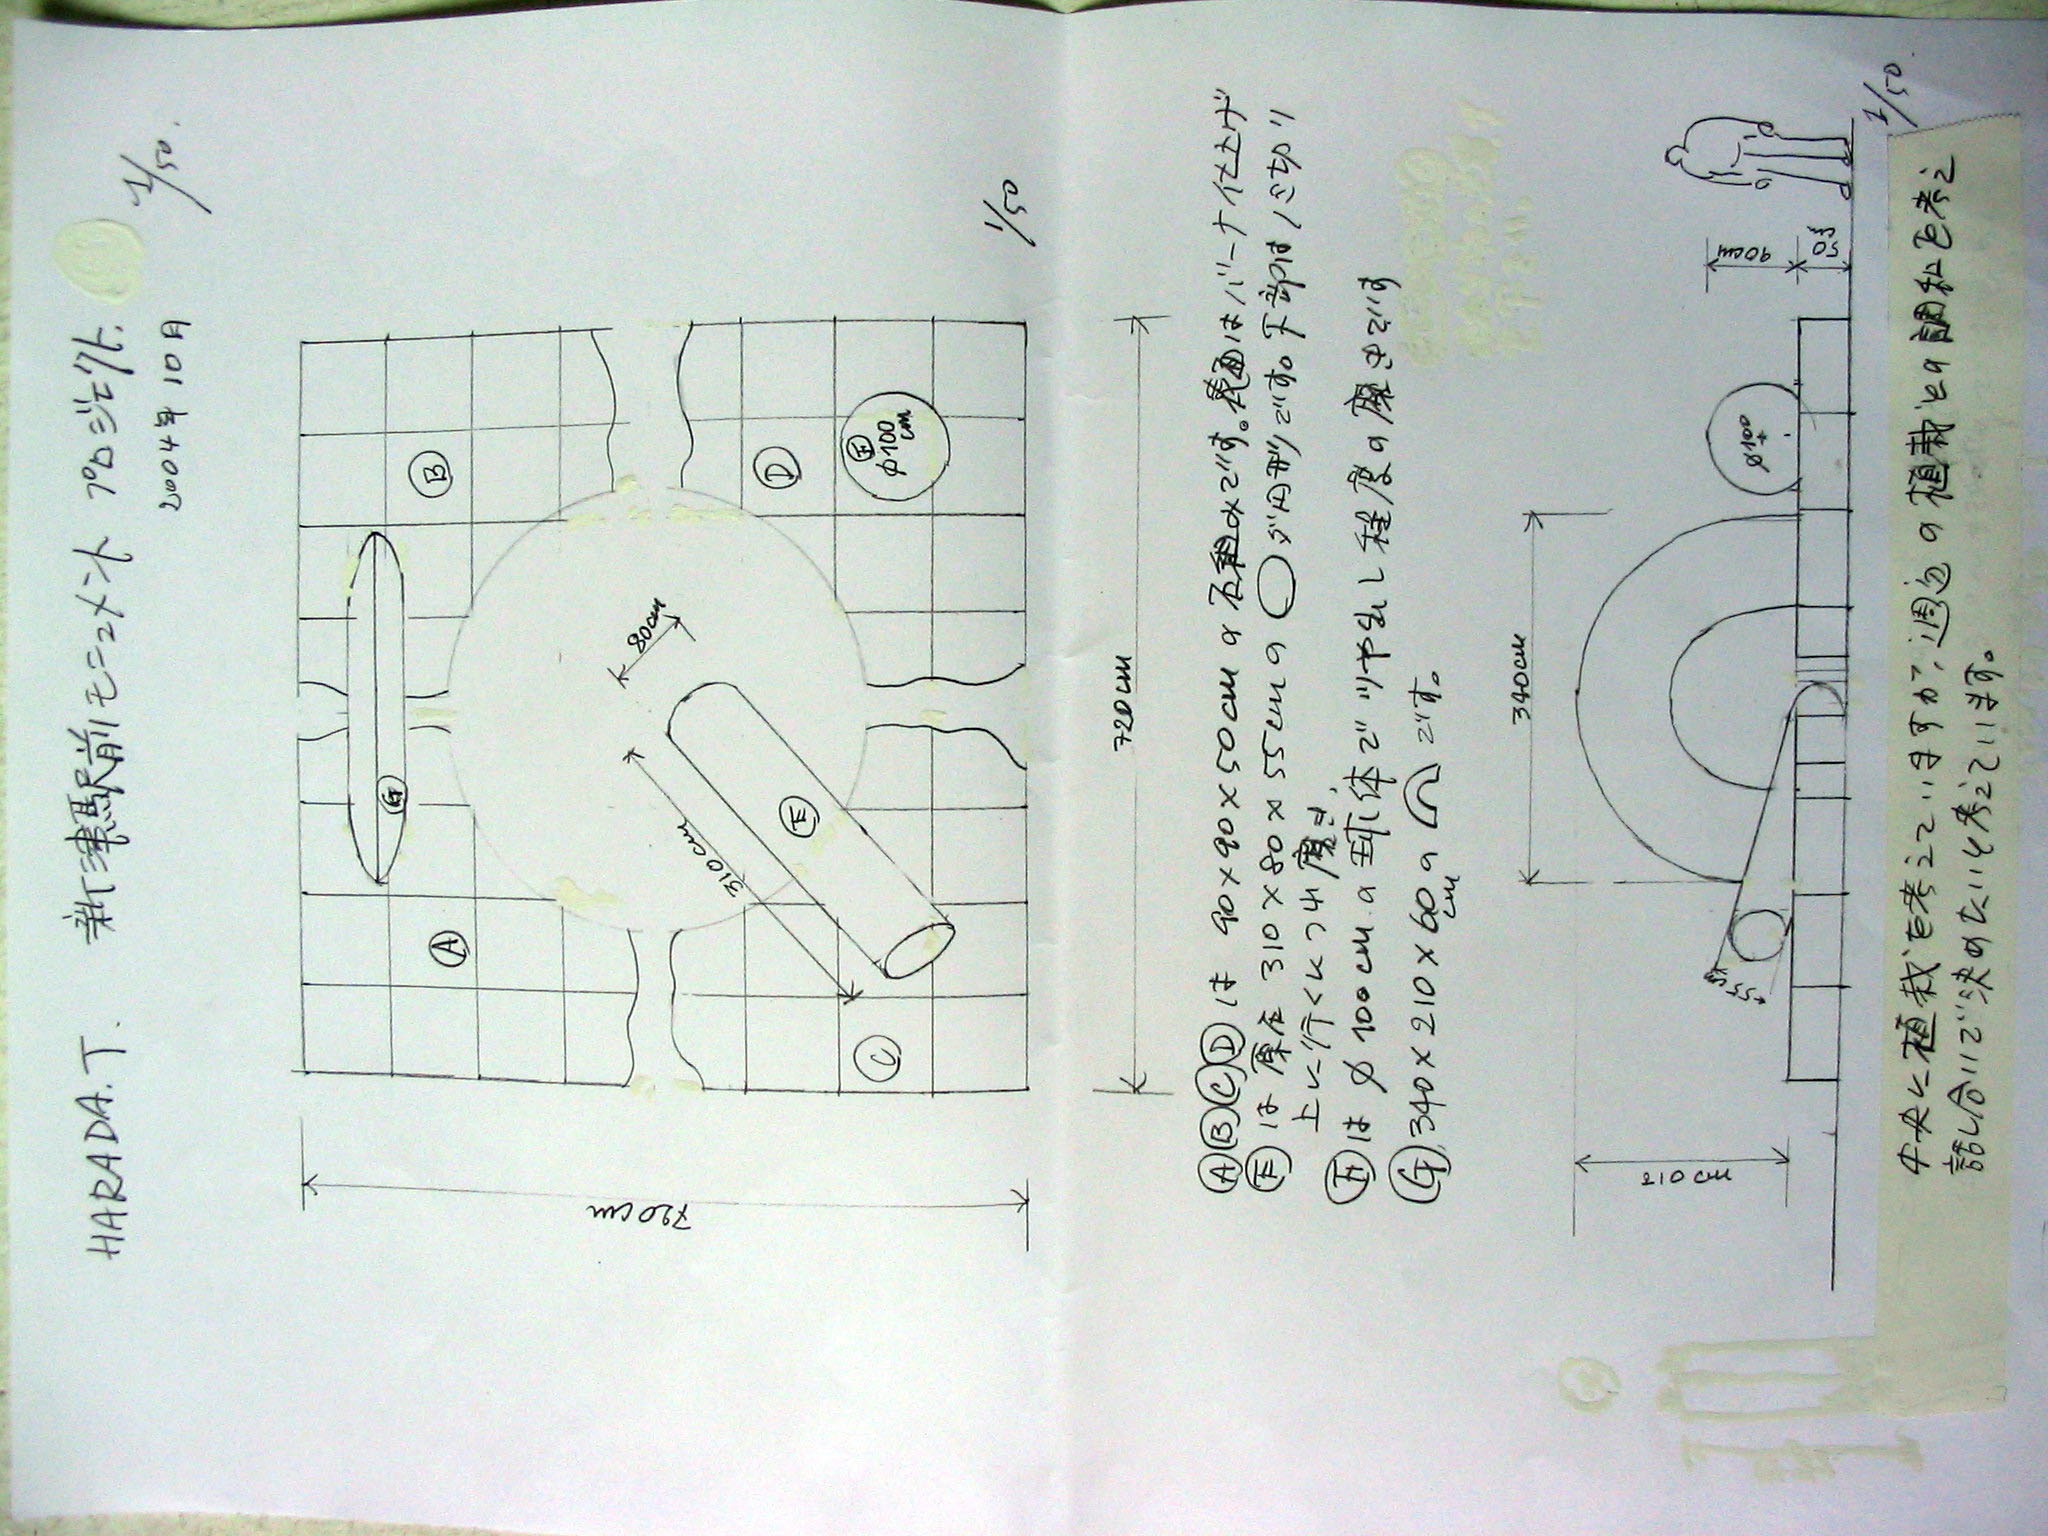 HARADA.T. 新津駅前モニュメント プロジェクト. 1/50.
2004年10月
B
D
F
φ100
cm
G
A
E
C
80cm
310cm
720cm
720cm
1/50
ⒶⒷⒸⒹは 90×90×50cmの石組みです。表面はバーナ仕上げ
Ⓔは 原石 310×80×55cmの ◯ ダ円形です。下部はノミ切り
上に行くにつれ磨き,
Ⓕは φ100cmの球体でツヤ出し程度の磨きです
Ⓖ. 340×210×60cmの です。
340cm
210cm
55cm
φ100
90cm
50
1/50.
中央に植栽を考えていますが、周辺の植栽との調和を考え
話し合いで決めたいと考えています。